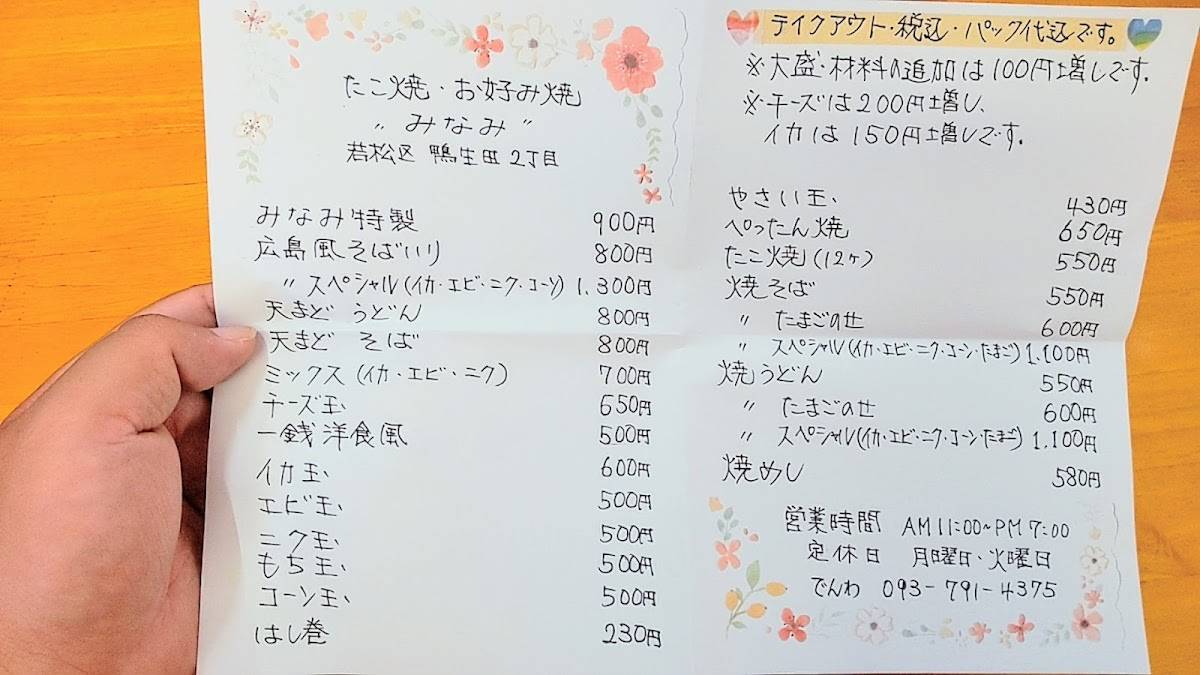 たこ焼・お好み焼
〃みなみ〃
若松区 鴨生田2丁目
みなみ特製 900円
広島風そば入り 800円
〃 スペシャル(イカ・エビ・ニク・コーン) 1.300円
天まど うどん 800円
天まど そば 800円
ミックス(イカ・エビ・ニク) 700円
チーズ玉 650円
一銭洋食風 500円
イカ玉 600円
エビ玉 500円
ニク玉 500円
もち玉 500円
コーン玉 500円
はし巻 230円
テイクアウト・税込・パック代込です。
※大盛・材料の追加は100円増しです。
※チーズは200円増し、
イカは150円増しです。
やさい玉 430円
ぺったん焼 650円
たこ焼(12ヶ) 550円
焼そば 550円
〃 たまごのせ 600円
〃 スペシャル(イカ・エビ・ニク・コーン・たまご) 1.100円
焼うどん 550円
〃 たまごのせ 600円
〃 スペシャル(イカ・エビ・ニク・コーン・たまご) 1.100円
焼めし 580円
営業時間 AM11:00~PM7:00
定休日 月曜日・火曜日
でんわ 093-791-4375